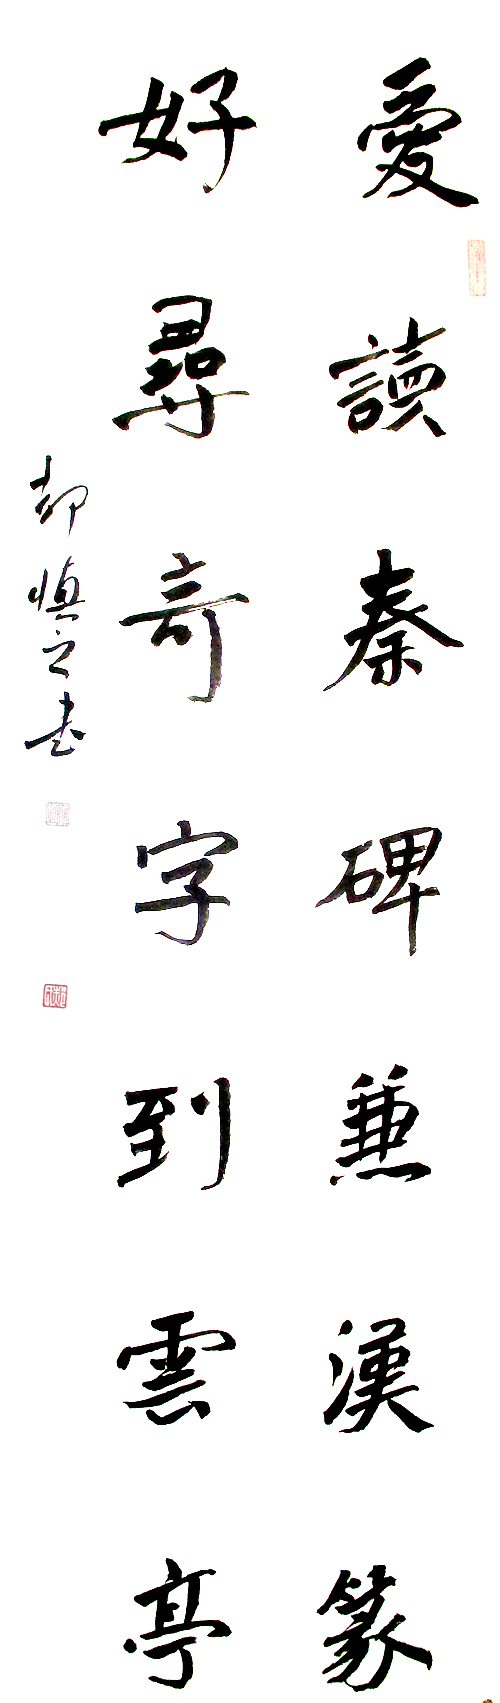 愛讀秦碑兼漢篆
好尋奇字到雲亭
慎之书